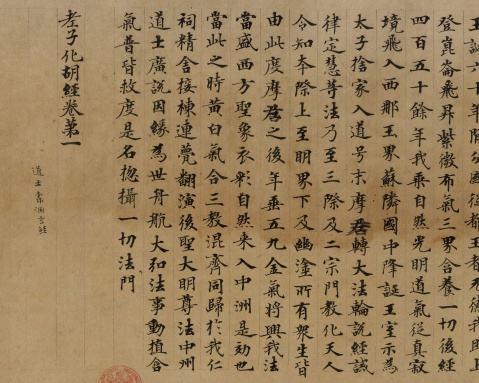 王誕六十年間分國從都王者无德我即上
登崑崙飛昇紫微布氣三界含養一切後經
四百五十餘年我乘自然光明道氣從真寂
境飛入西那玉界蘇隣國中降誕王室示為
太子捨家入道号末摩尼轉大法輪說經誡
律定慧等法乃至三際及二宗門教化天人
令知本際上至明界下及幽塗所有衆生皆
由此度摩尼之後年垂五九金氣將興我法
當盛西方聖象衣彩自然来入中洲是効也
當此之時黃白氣合三教混齊同歸於我仁
祠精舍接棟連甍翻演後聖大明尊法中州
道士廣說因緣為世舟航大弘法事動植含
氣普皆救度是名揔攝一切法門
老子化胡經卷第一
道士索洞玄經